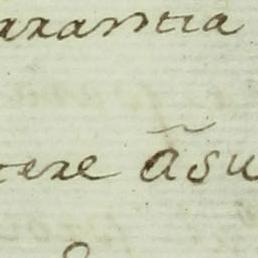 arantia
ere ãsu